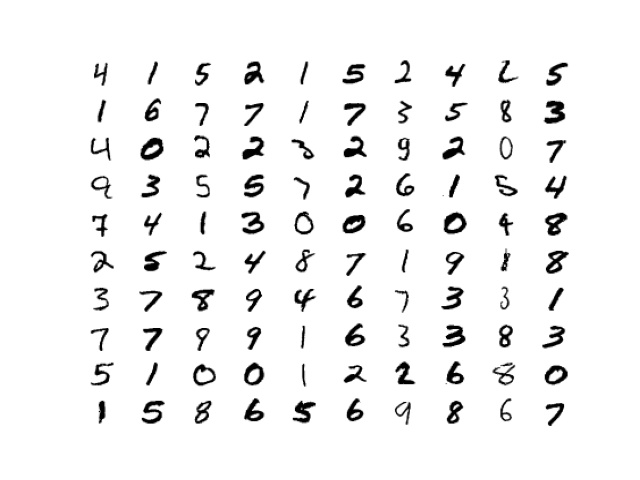 4 1 5 2 1 5 2 4 2 5
1 6 7 7 1 7 3 5 8 3
4 0 2 2 3 2 9 2 0 7
9 3 5 5 7 2 6 1 5 4
7 4 1 3 0 0 6 0 4 8
2 5 2 4 8 7 1 9 1 8
3 7 8 9 4 6 7 3 3 1
7 7 9 9 1 6 3 3 8 3
5 1 0 0 1 2 2 6 8 0
1 5 8 6 5 6 9 8 6 7